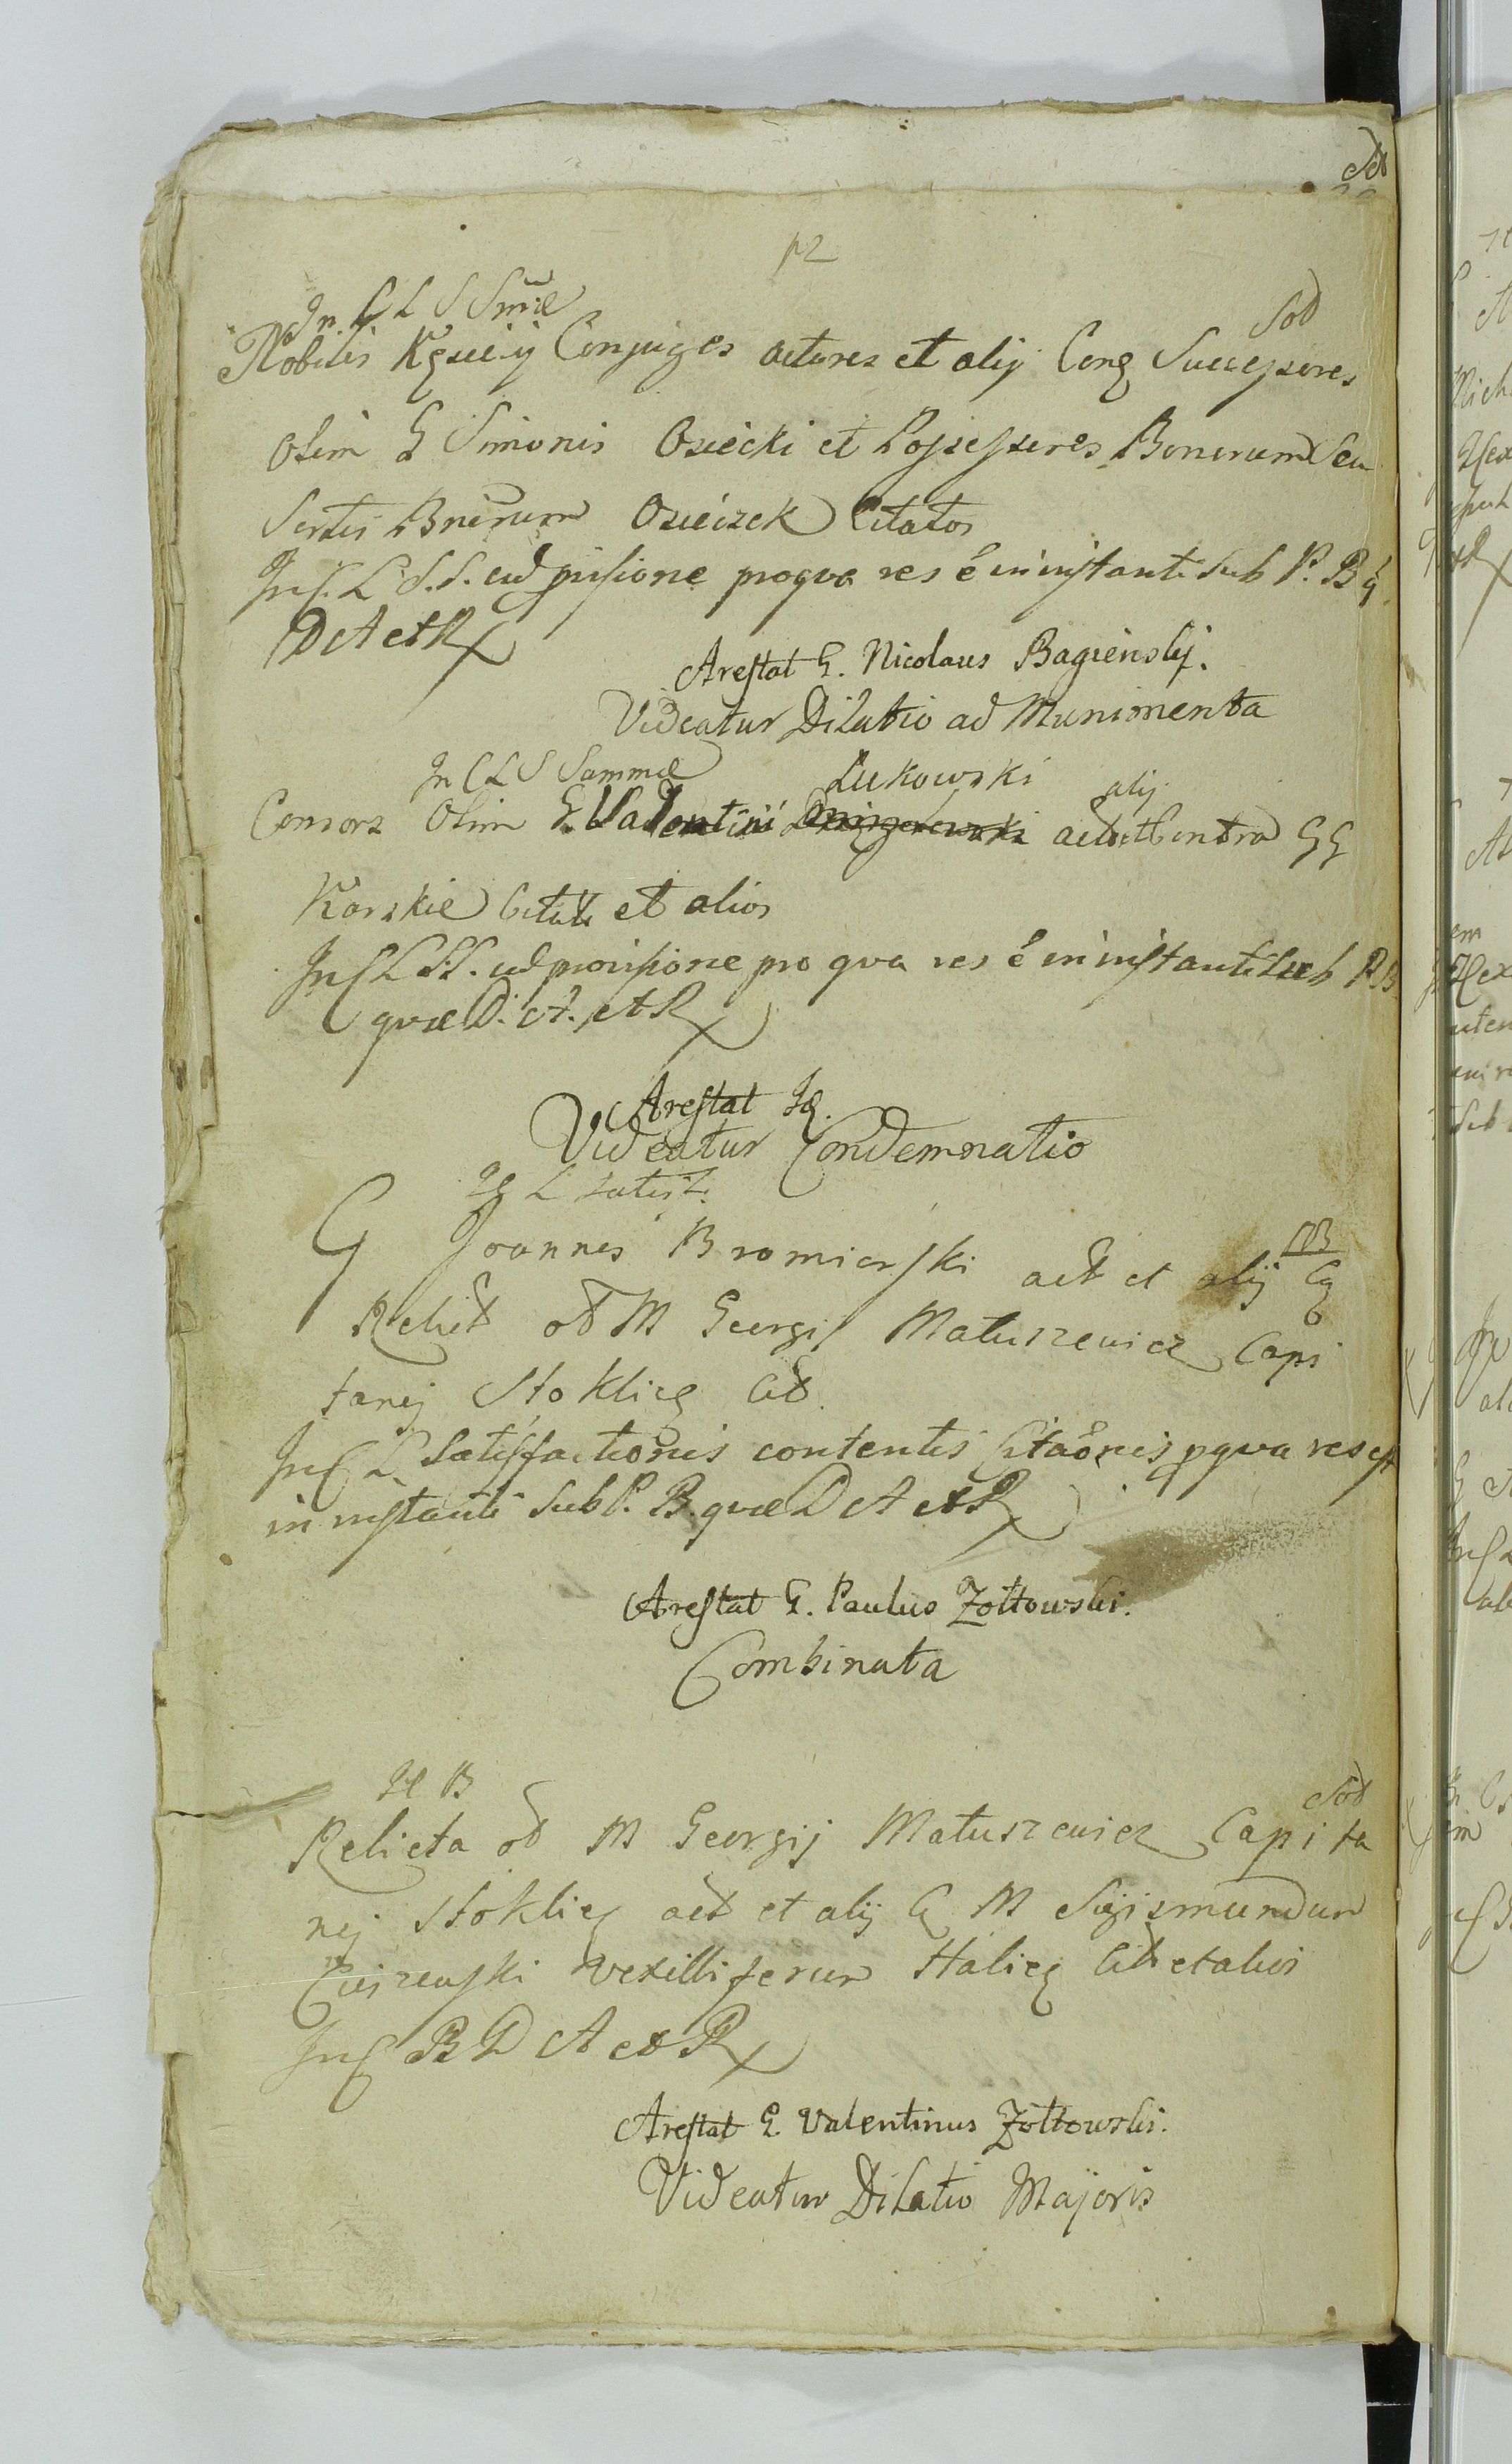 p2
In C L S Smæ Sod
Nobiles Kęsiciy Conjuges actores et alij Conq Successores
Olim G Simonis Osiecki et Possessores Bonorum Seu
Sortis Bnorum Osieczek Citatos
In C. L S.S. cū pvisione pro qva res ē in instanti sub P. B q
D A et R
Arestat G. Nicolaus Bagienskj.
Videatur Dilatio ad Munimenta
In C L S Summæ Lukowski alij
Consors Olim G Valentini act et Contra GG
Karskie Citat et alios
In C L S.S. cū provisione pro qva res ē in instanti sub P B
qvæ D. A. et R
Arestat Id.
Videatur Condemnatio
In L satisf. OB
G Joannes Bromierski act et alij Cq
Relict od M Georgij Matuszewicz Capi
tanej Stoklicz Cit
In C L Satisfactionis contentis Citaōnis p qva res est
in instanti sub P. B. qvæ D A et R
Arestat G. Paulus Zołtowski.
Combinata
In B Sod
Relicta od M Georgij Matuszewicz Capita
nej Stoklicz act et alij Cq M Sigismundum
vexilliferum Halicz Cit et alios
In C B D A et R
Arestat G. Valentinus Zołtowski.
Videatur Dilatio Majoris